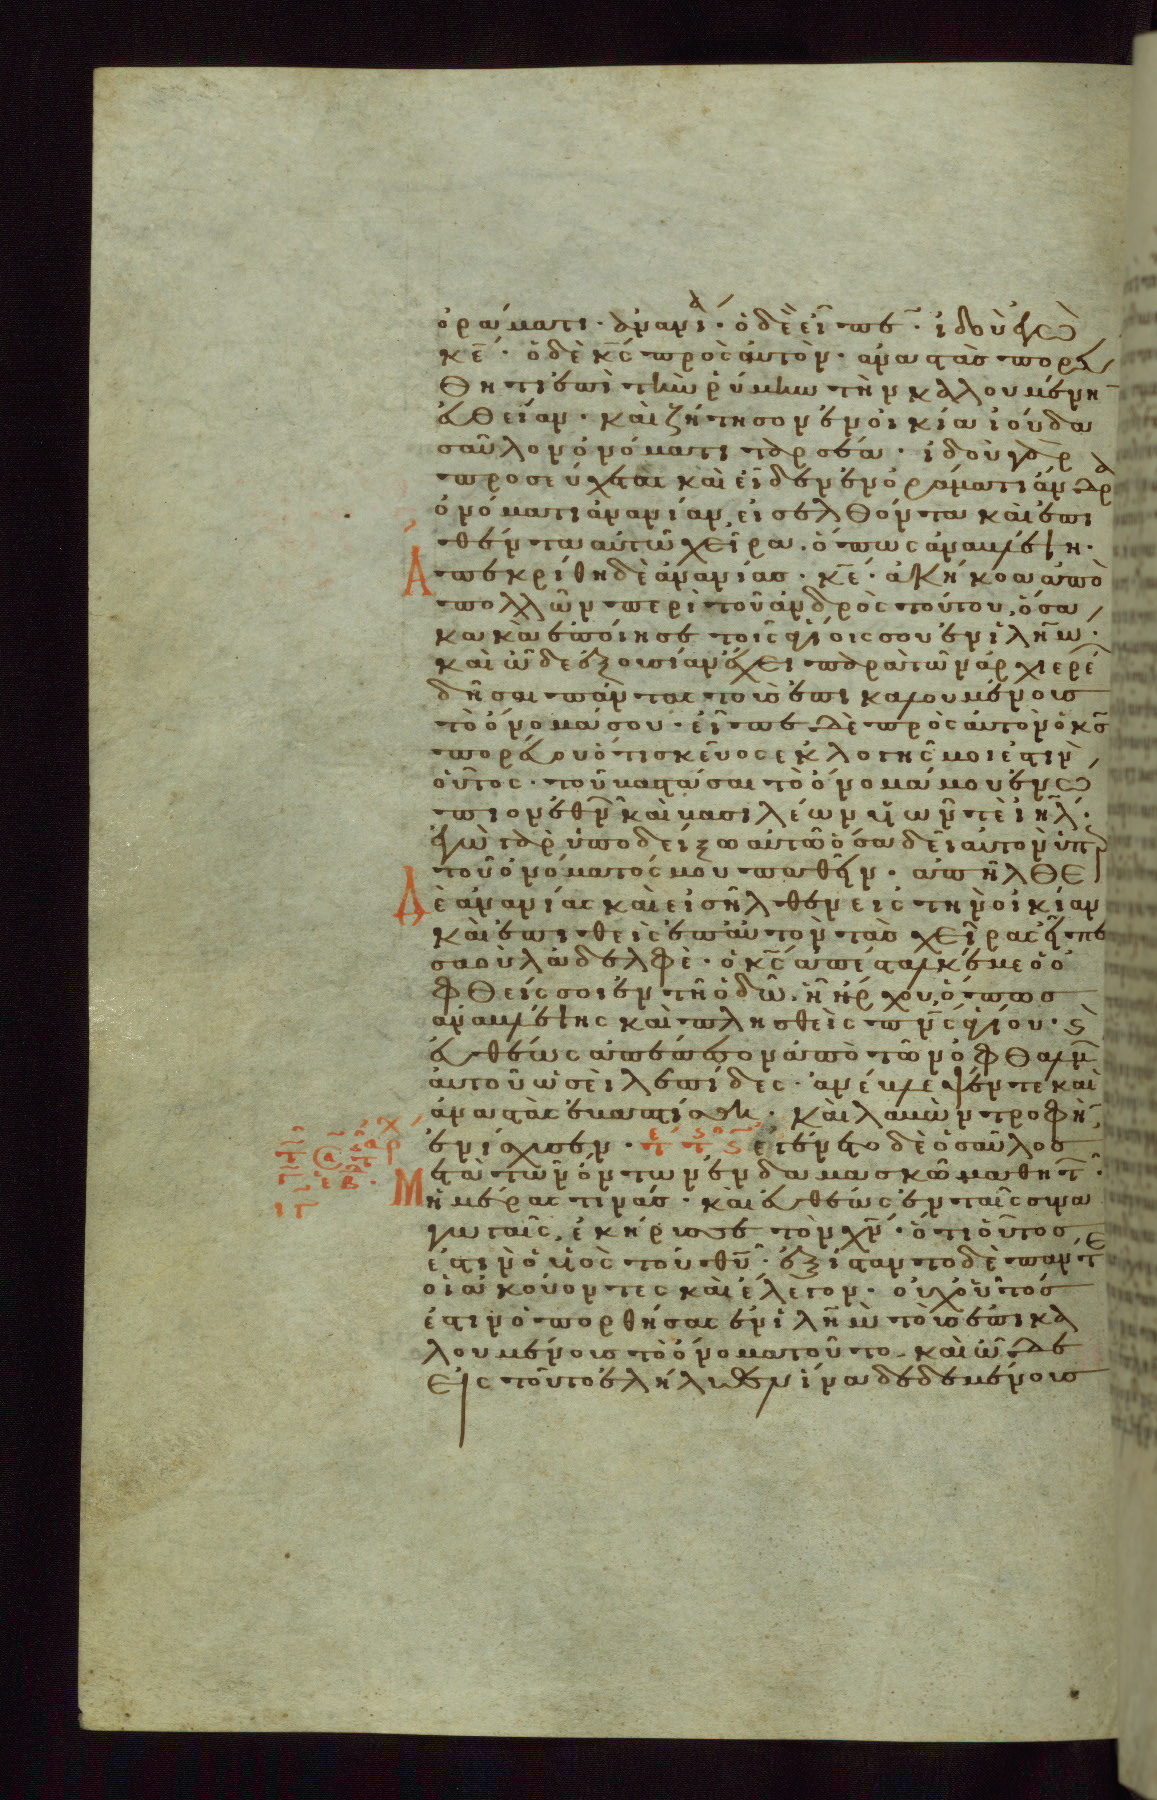 ὁράματι· ἀνανία· ὁ δὲ εἶπεν· ἰδοὺ ἐγὼ
κε̅· ὁ δὲ κς̅ πρὸς αὐτὸν· ἀναστὰς πορεύ
θητι ἐπὶ τὴν ῥύμην τὴν καλουμένην
εὐθεῖαν· καὶ ζήτησον ἐν οἰκία ἰούδα
σαῦλον ὀνόματι ταρσέα· ἰδοὺ γὰρ
προσεύχεται καὶ εἶδεν ἐν ὁράματι ἄνδρα
ὀνόματι ἀνανίαν εἰσελθόντα καὶ ἐπι
θέντα αὐτῶ χεῖρα. ὅπως ἀναβλέψη·
Ἀπεκρίθη δὲ ἀνανίας· κε̅· ἀκήκοα ἀπὸ
πολλῶν περὶ τοῦ ἀνδρὸς τούτου, ὅσα
κακὰ ἐποίησε τοῖς ἁγίοις σου ἐν ἱλη̅μ·
καὶ ὧδε ἐξουσίαν ἔχει παρὰ τῶν ἀρχιερέ
δῆσαι πάντας τοὺς ἐπικαλουμένους
τὸ ὄνομά σου· εἶπε δὲ πρὸς αὐτὸν ὁ κς̅
πορεύου ὅτι σκεῦος ἐκλογῆς μοι ἐστιν
οὗτος· τοῦ βαστάσαι τὸ ὄνομά μου ἐνώ
πιον ἐθν καὶ βασιλέων υἱῶν τὲ ιη̅λ·
ἐγὼ γὰρ ὑποδείξω αὐτῶ ὅσα δεῖ αὐτὸν ὑπὲρ
τοῦ ὀνόματός μου παθεῖν· ἀπῆλθε
Δὲ ἀνανίας καὶ εἰσῆλθεν εἰς τὴν οἰκίαν
καὶ ἐπιθεὶς ἐπ' αὐτὸν τὰς χεῖρας εἶπε
σαοὺλ ἀδελφὲ· ὁ κς̅ ἀπέσταλκέ με ὁ ὀ
φθείς σοι ἐν τῆ ὁδῶ. ἧ ἤρχου, ὅπως
ἀναβλέψης καὶ πλησθεὶς πνς̅ ἁγίου· ϗ
εὐθέως ἀπέπεσον ἀπὸ τῶν ὀφθαλμ
αὐτοῦ ὡσεὶ λεπίδες· ἀνέβλεψέν τε καὶ
ἀναστὰς ἐβαπτίσθη· καὶ λαβὼν τροφὴν
ἐνίσχυσεν· ἐγένετο δὲ ὁ σαῦλος
μετὰ τῶν ὄντων ἐν δαμασκῶ μαθητ
ἡμέρας τινάς· καὶ εὐθέως ἐν ταῖς συνα
γωγαῖς, ἐκήρυσσε τὸν χν̅· ὅτι οὗτος
ἐστιν ὁ υἱὸς τοῦ θυ̅· ἐξίσταντο δὲ πάντε
οἱ ἀκούοντες καὶ ἔλεγον· οὐχ οὗτός
ἐστιν ὁ πορθήσας ἐν ἱλη̅μ τοὺς ἐπικα
λουμένους τὸ ὄνομα τοῦτο. καὶ ὧδε
εἰς τοῦτο ἐλήλυθεν ἵνα δεδεμένους